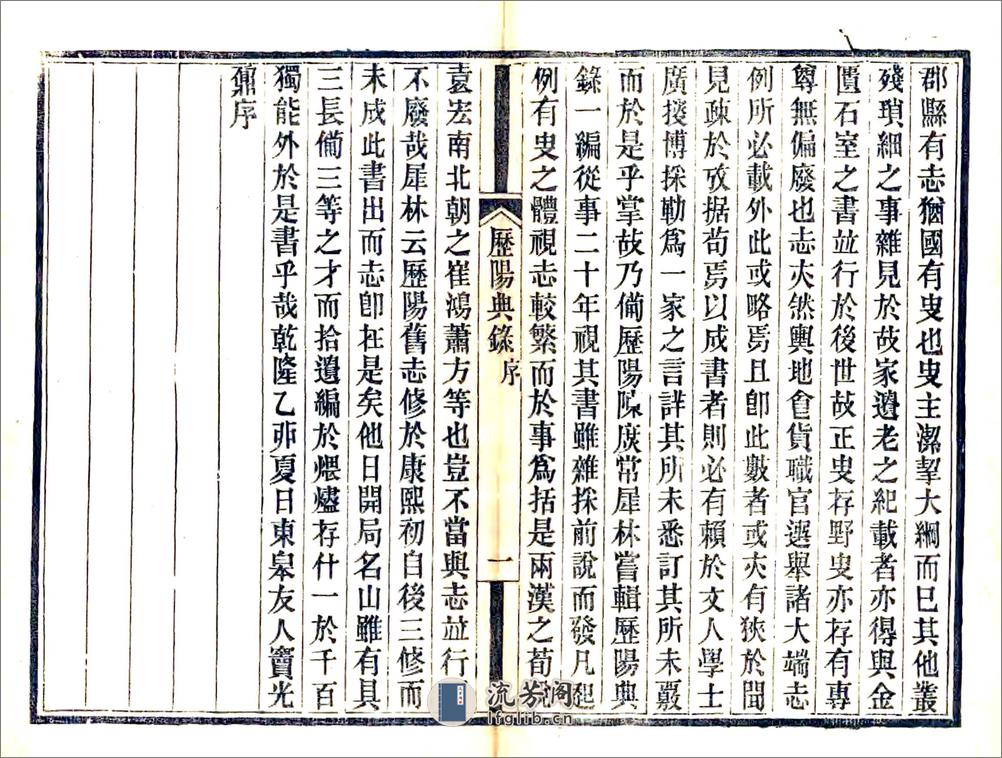 郡縣有志猶國有叓也叓主潔挈大綱而已其他叢
殘瑣細之事雜見於故家遺老之紀載者亦得與金
匱石室之書並行於後世故正叓存野叓亦存有專
尊無偏廢也志夾然輿地會貨職官選舉諸大端志
例所必載外此或略焉且卽此數者或夾有狹於聞
見疎於攷据苟焉以成書者則必有賴於文人學士
廣搜博採勒爲一家之言詳其所未悉訂其所未覈
而於是乎掌故乃備歷陽陳廣常犀林嘗輯歷陽典
錄一編從事二十年視其書雖雜採前說而發凡起
例有叓之體視志較繁而於事爲括是兩漢之荀
歷陽典錄 序
一
袁宏南北朝之崔鴻蕭方等也豈不當與志並行
不廢哉犀林云歷陽舊志修於康熙初自後三修而
未成此書出而志卽在是矣他日開局名山雖有具
三長備三等之才而拾遺編於煨燼存什一於千百
獨能外於是書乎哉乾隆乙卯夏日東皋友人寶光
鼐序
流芳閣
lfglib.cn